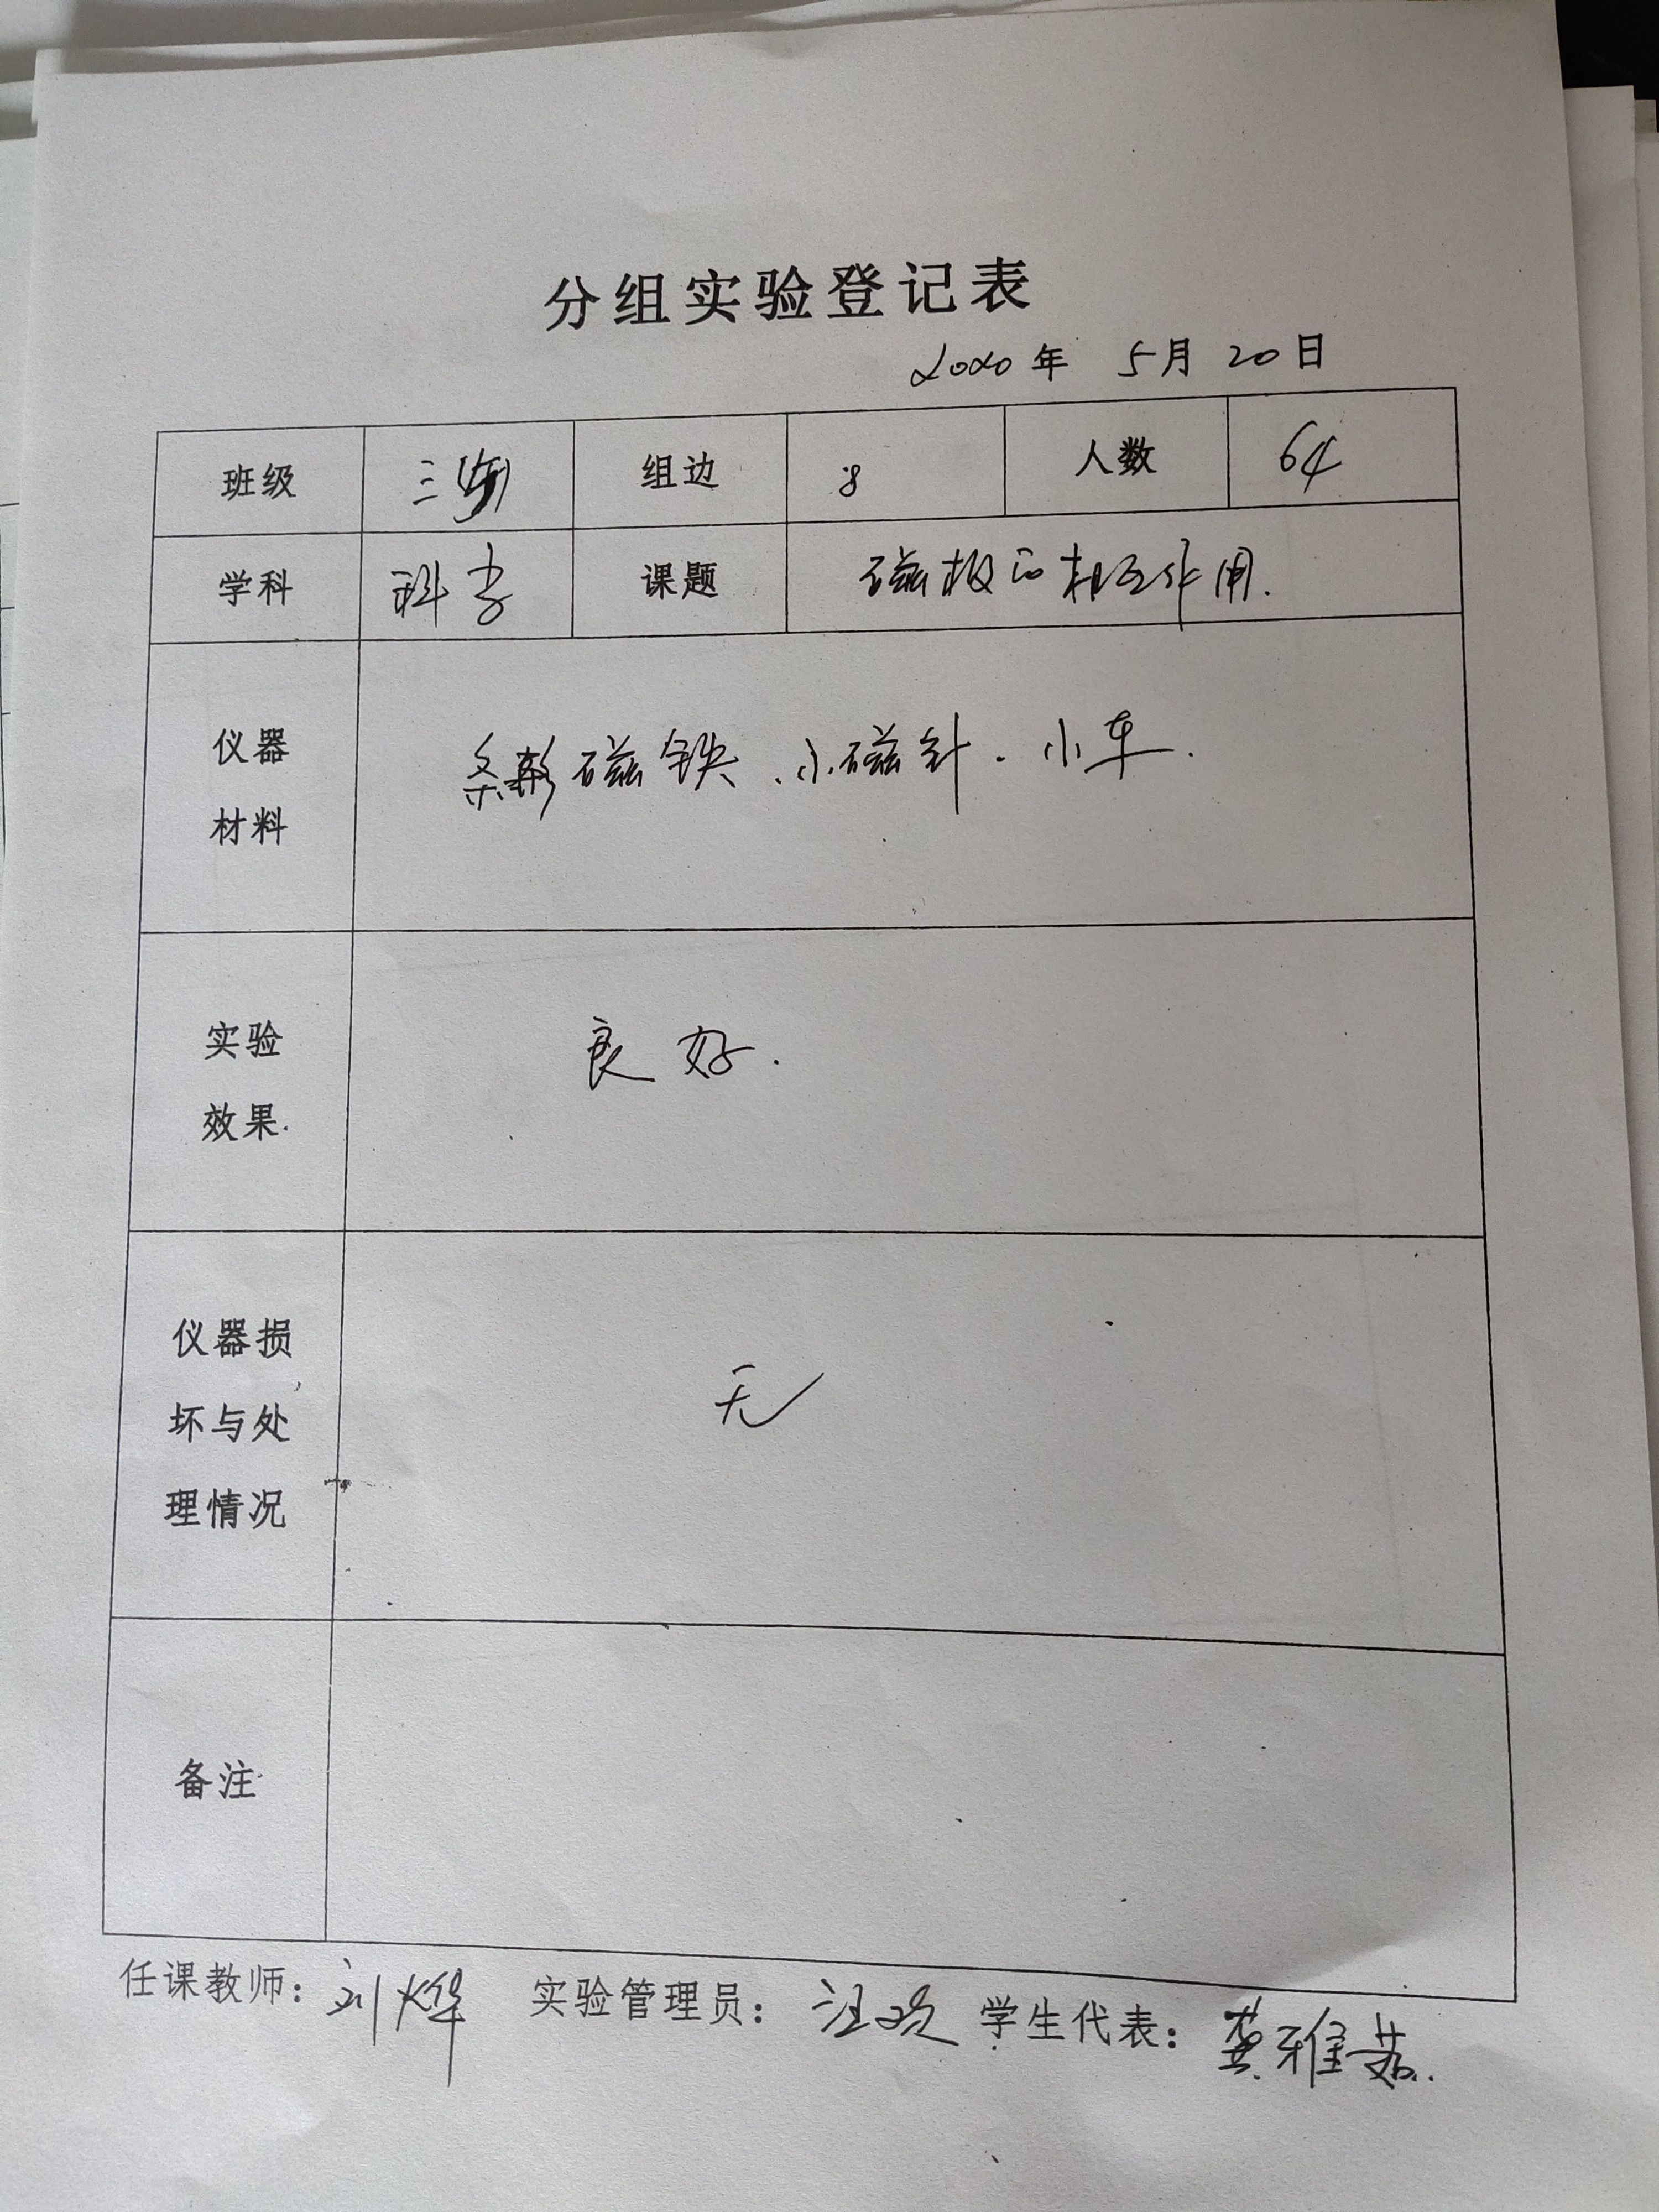 分组实验登记表
2020年 5月 20日
班级 组边 8 人数 64
学科 科学 课题 磁极的相互作用.
仪器
材料
条形磁铁、小磁针. 小车.
实验
效果
良好.
仪器损
坏与处
理情况
无
备注
任课教师: 刘烨 实验管理员: 汪欢 学生代表: 龚雅茹.